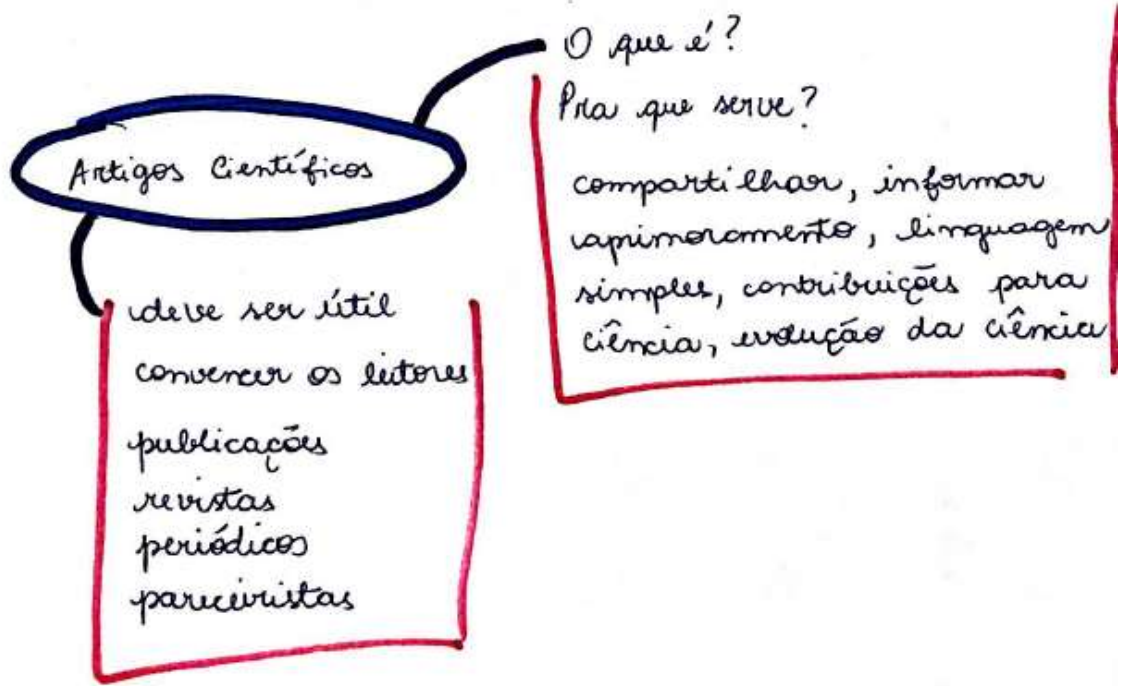 Artigos Científicos
O que é?
Pra que serve?
compartilhar, informar
aprimoramento, linguagem
simples, contribuições para
ciência, evolução da ciência
deve ser útil
convencer os leitores
publicações
revistas
periódicos
pareceiristas